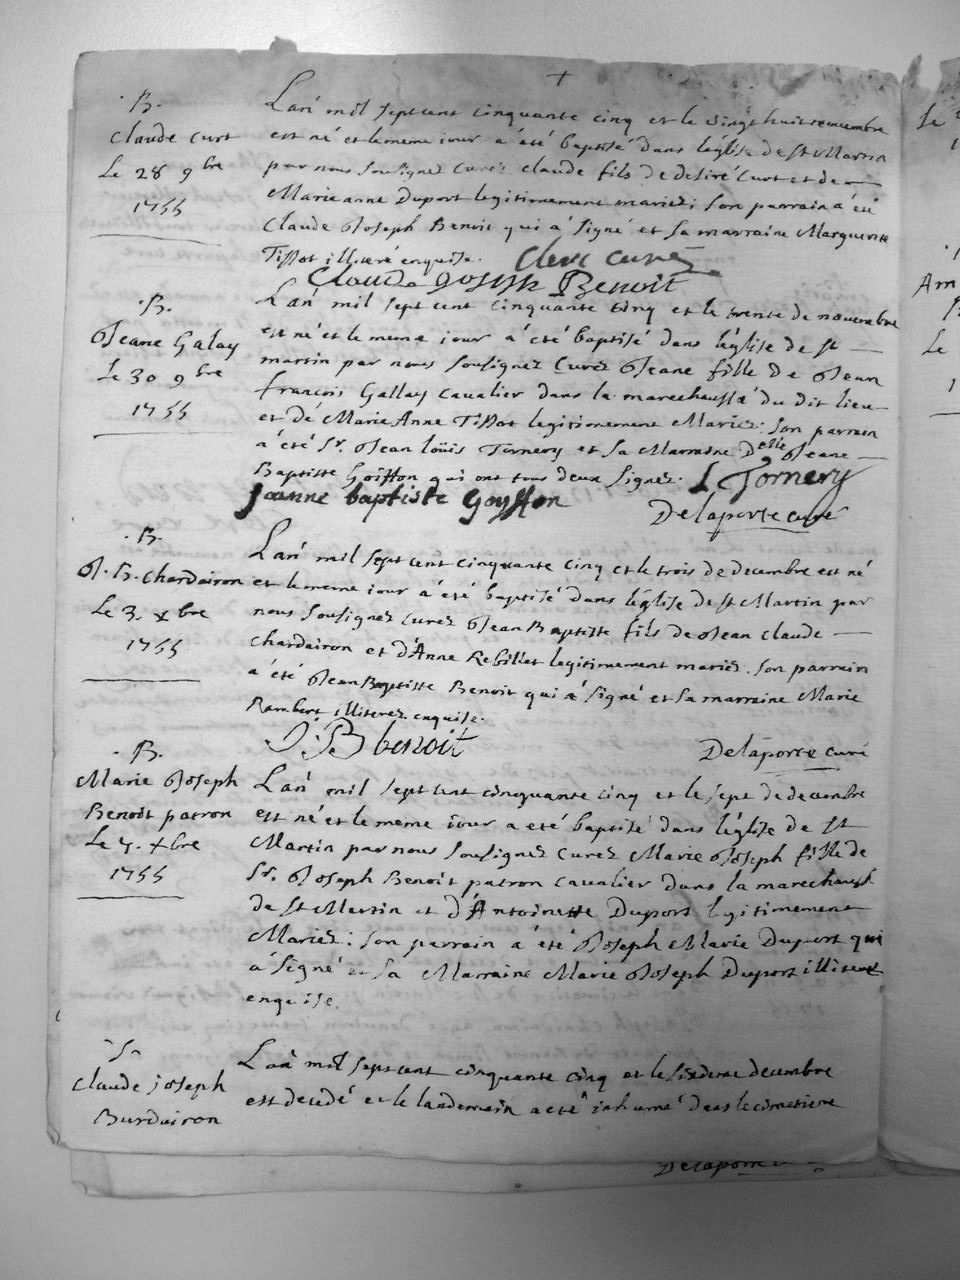 B.
Claude Curt
Le 28 9bre
1755
L'an mil sept cent cinquante cinq et le vingt huit novembre
est né et le meme iour a été baptisé dans l'église de St Martin
par nous soussignez curéz Claude fils de desiré Curt et de
Marieanne Duport legitimement mariez; son parrain a été
Claude Joseph Benoit qui a signé et sa marraine Marguerite
Tissot illiteré enquise. Clerc curéz
Claude Joseph Benoit
B.
Jeane Galay
Le 30 9bre
1755
L'an mil sept cent cinquante cinq et le trente de novembre
est né et le meme iour a été baptisé dans l'église de st
martin par nous soussignez curéz Jeane fille de Jean
françois Gallay cavalier dans la marechaussé du dit lieu
et de Marie Anne Tissot legitimement Mariez: son parrain
a été Sr. Jean loüis Tornery et sa Marraine Delle Jeane
Baptiste Goiffon qui ont tous deux signez. L Tornery
Joanne baptiste Goyffon
Delaporte curé
B.
J. B. Chardairon
Le 3. xbre
1755
L'an mil sept cent cinquante cinq et le trois de decembre est né
et le meme iour a été baptisé dans l'église de st Martin par
nous soussignez curéz Jean Baptiste fils de Jean Claude
Chardairon et d'Anne Rebillet legitimement mariéz. son parrain
a été Jean Baptiste Benoit qui a signé et sa marraine Marie
Rambert illiterez enquise.
J: B benoit
Delaporte curé
B.
Marie Joseph
Benoit patron
Le 7. xbre
1755
L'an mil sept cent cinquante cinq et le sept de decembre
est né et le meme iour a été baptisé dans l'église de st
Martin par nous soussignez curéz Marie Joseph fille de
Sr. Joseph Benoit patron cavalier dans la marechaussé
de St Martin et d'Antoinette Duport legitimement
Mariéz: son parrain a été Joseph Marie Duport qui
a signé et sa Marraine Marie Joseph Duport illiteré
enquise.
S
Claude joseph
Burdairon
L'an mil sept cent cinquante cinq et le sixieme decembre
est decedé et le landemain a eté inhumé dans le cimetiere
Delaporte
Le
Arn
Le
1